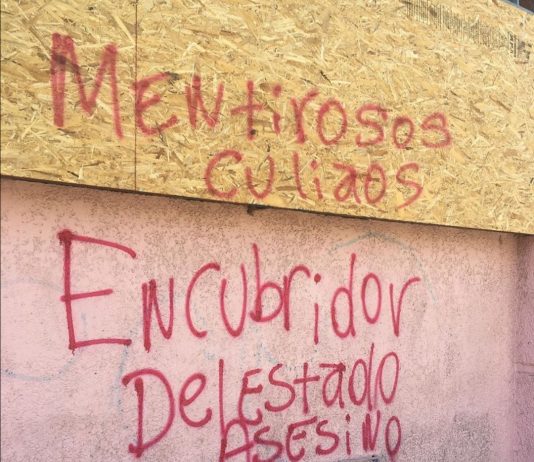 MENtirosos
culiaos
ENcubridor
Del Estado
ASESiNO